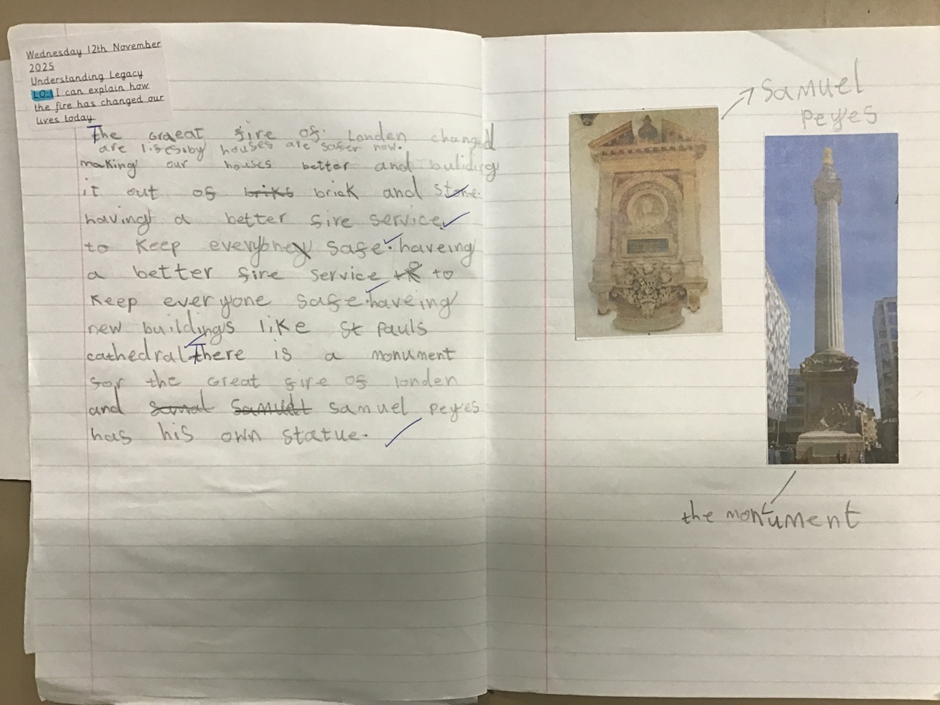 Wednesday 12th November
2025
Understanding Legacy
LO: I can explain how
the fire has changed our
lives today
The graeat fire of London changed
are lifes by houses are safer now.
making our houses better and buliding
it out of briks brick and stone.
having a better fire service
to keep everyoney safe. haveing
a better fire service to
keep everyone safe. haveing
new buildings like St Pauls
cathedral. There is a monument
for the Great fire of londen
and samal Samuall samuel peyes
has his own statue.
Samuel
peyes
the monument